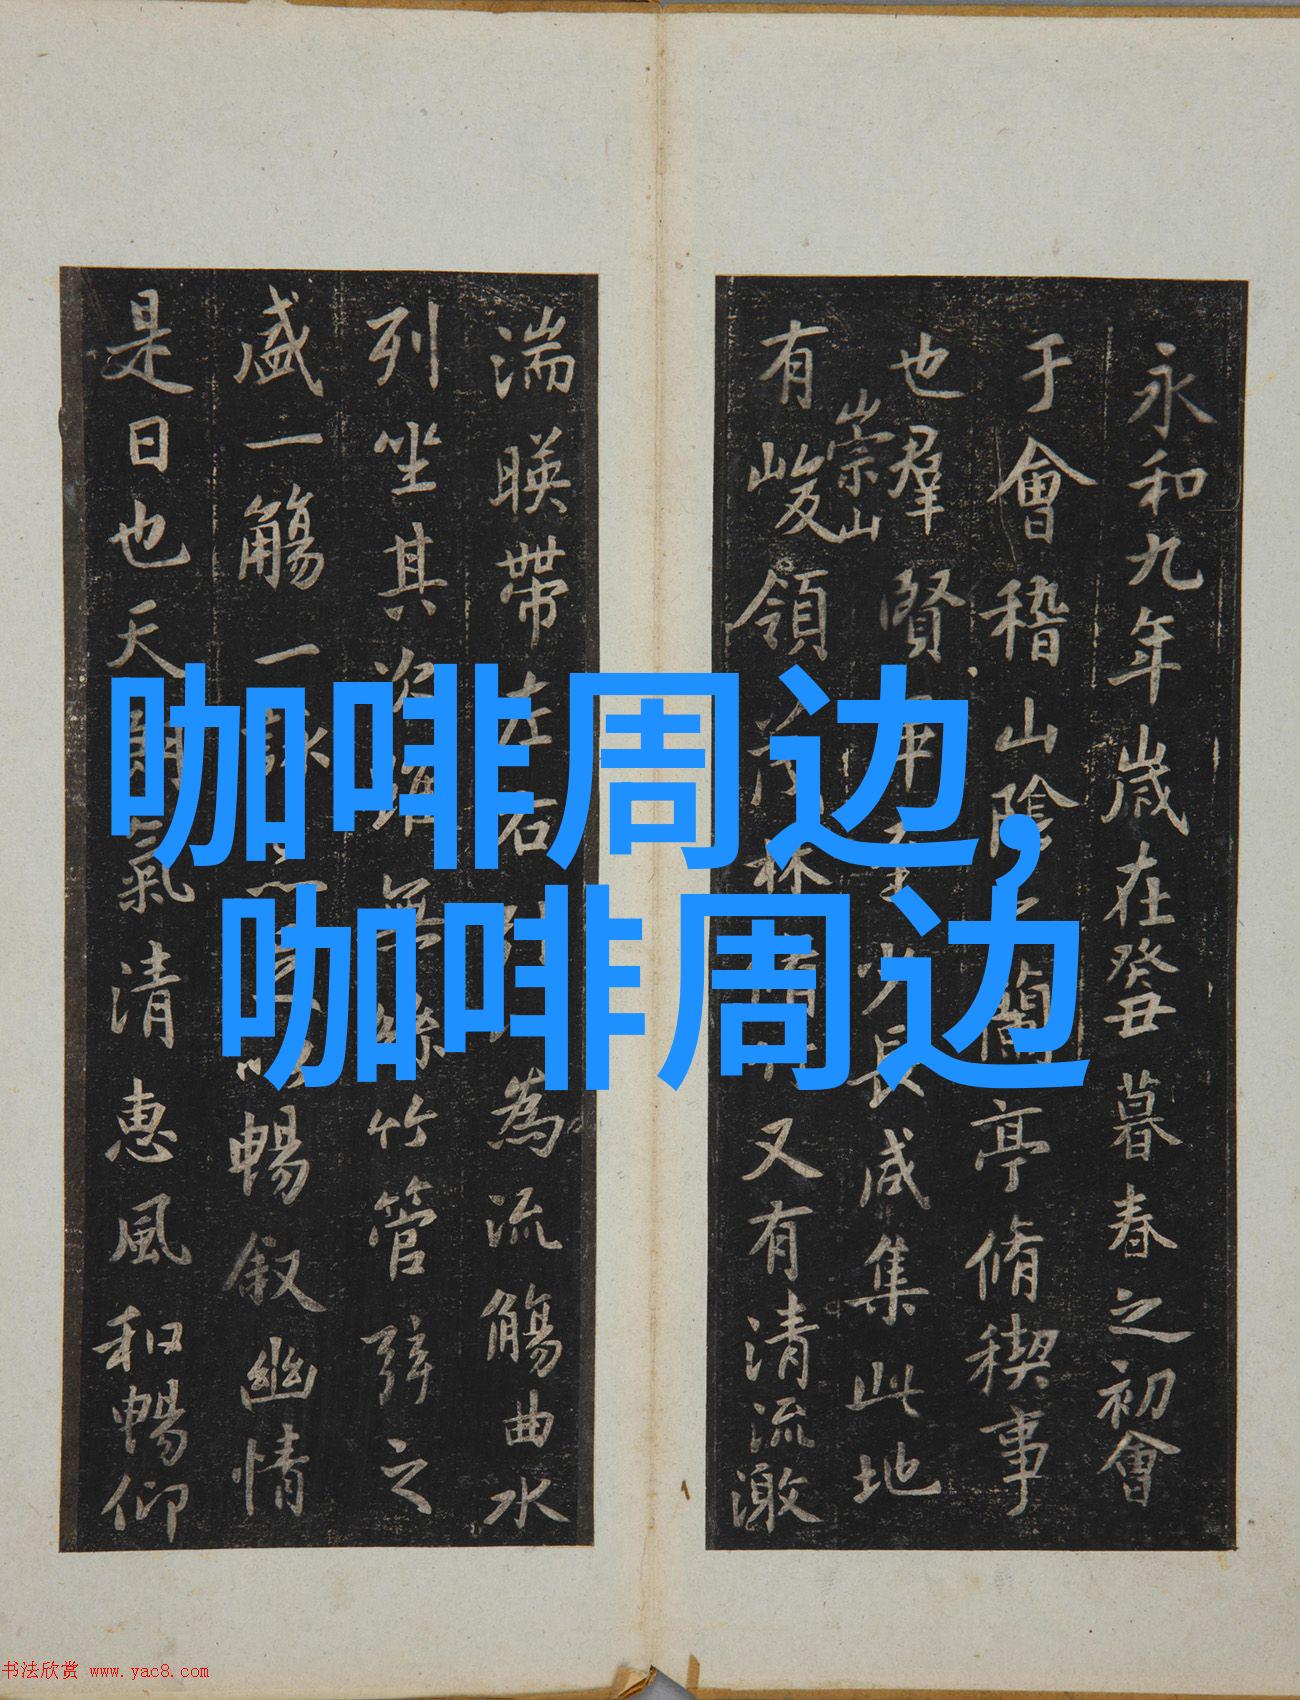 咖啡周边,
咖啡周边
永和九年歲在癸丑暮春之初會
于會稽山陰蘭亭脩稧事
也羣賢畢至少長咸集此地
崇山
有峻領茂林脩竹又有清流激
湍暎帶左右為流觴曲水
列坐其次雖無絲竹管弦之
盛一觴一詠暢叙幽情
是日也天朗氣清惠風和暢仰
书法欣赏 www.yac8.com